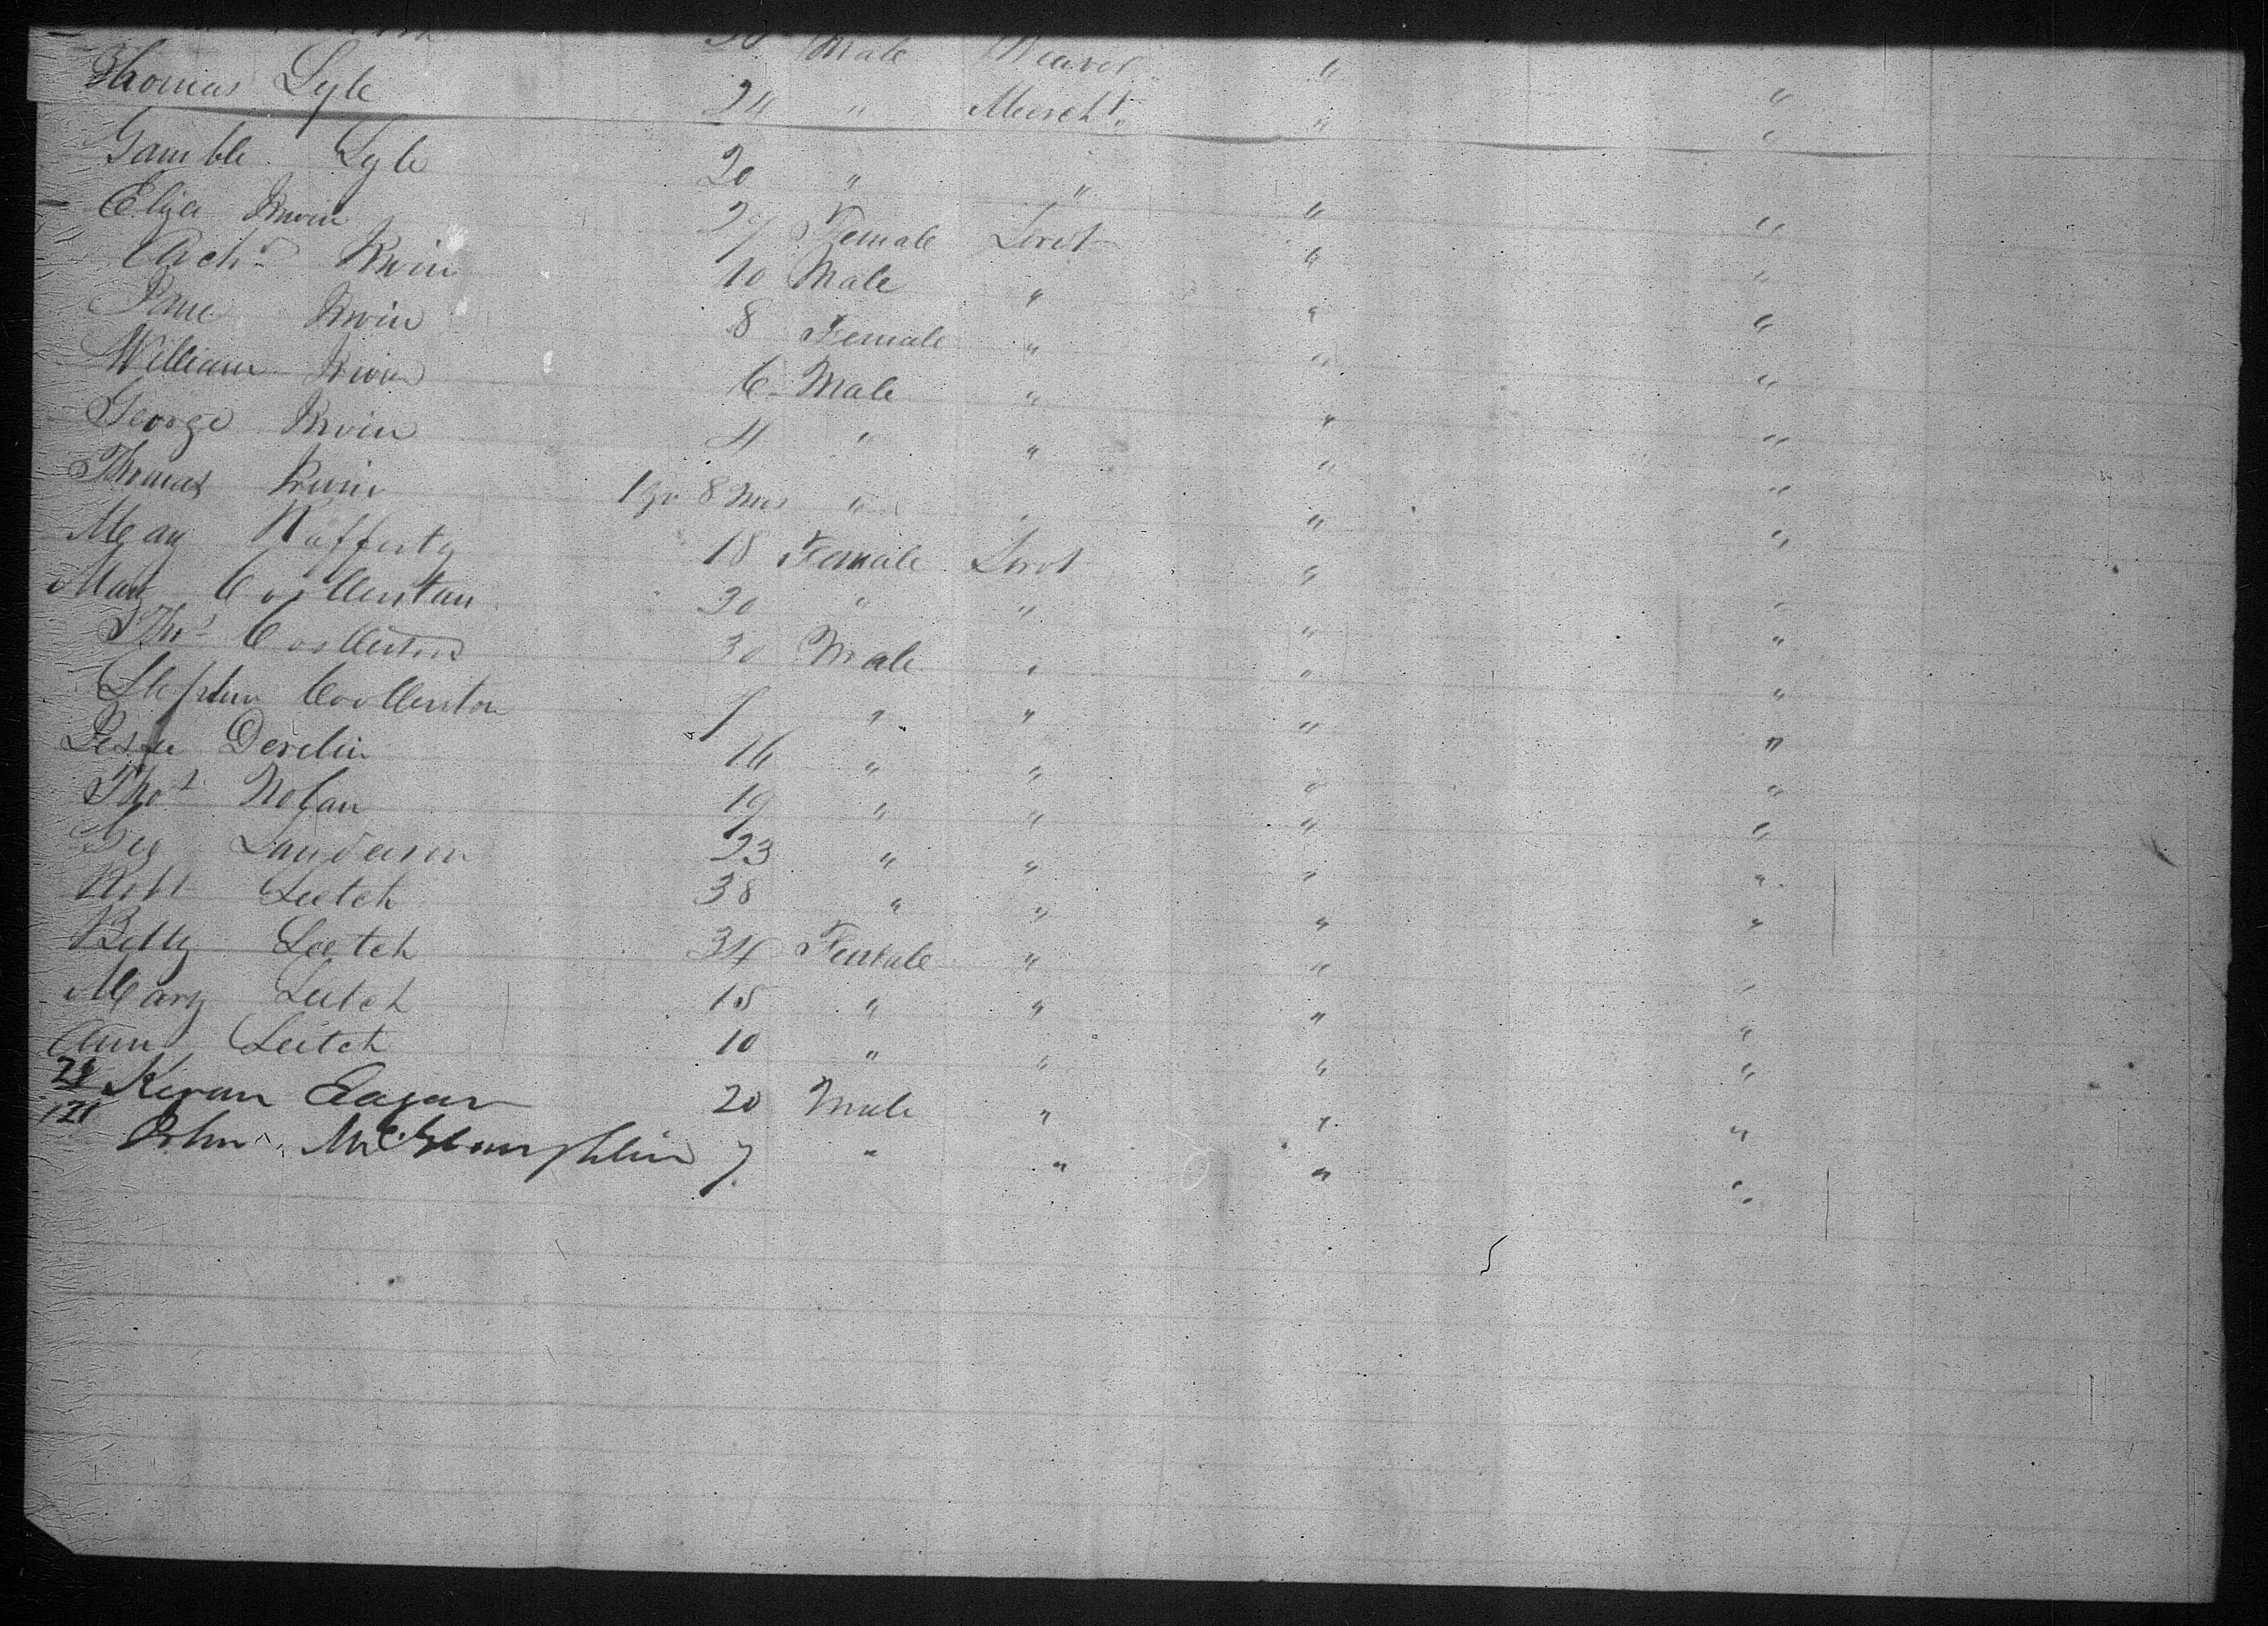 30 Male Weaver " "
Thomas Lyle 24 " Mercht. " "
Gamble Lyle 20 " " " "
Eliza Irwin 29 Female Servt " "
Archd Irwin 10 Male " " "
Jane Irwin 8 Female " " "
William Irwin 6 Male " " "
George Irwin 4 " " " "
Thomas Irwin 1 yr 8 Mos " " " "
Mary Rafferty 18 Female Servt " "
Mary Coollentan 30 " " " "
Thos Coollenton 30 Male " " "
Stephen Coollenton 1 " " " "
Devlin 16 " " " "
Thos Nolan 19 " " " "
Geo Sanderson 23 " " " "
Robt Leetch 38 " " " "
Betty Leetch 34 Female " " "
Mary Leetch 15 " " " "
Ann Leetch 10 " " " "
21 Keran Eagan 20 Male " " "
121 John McGloughlin 7 " " " "